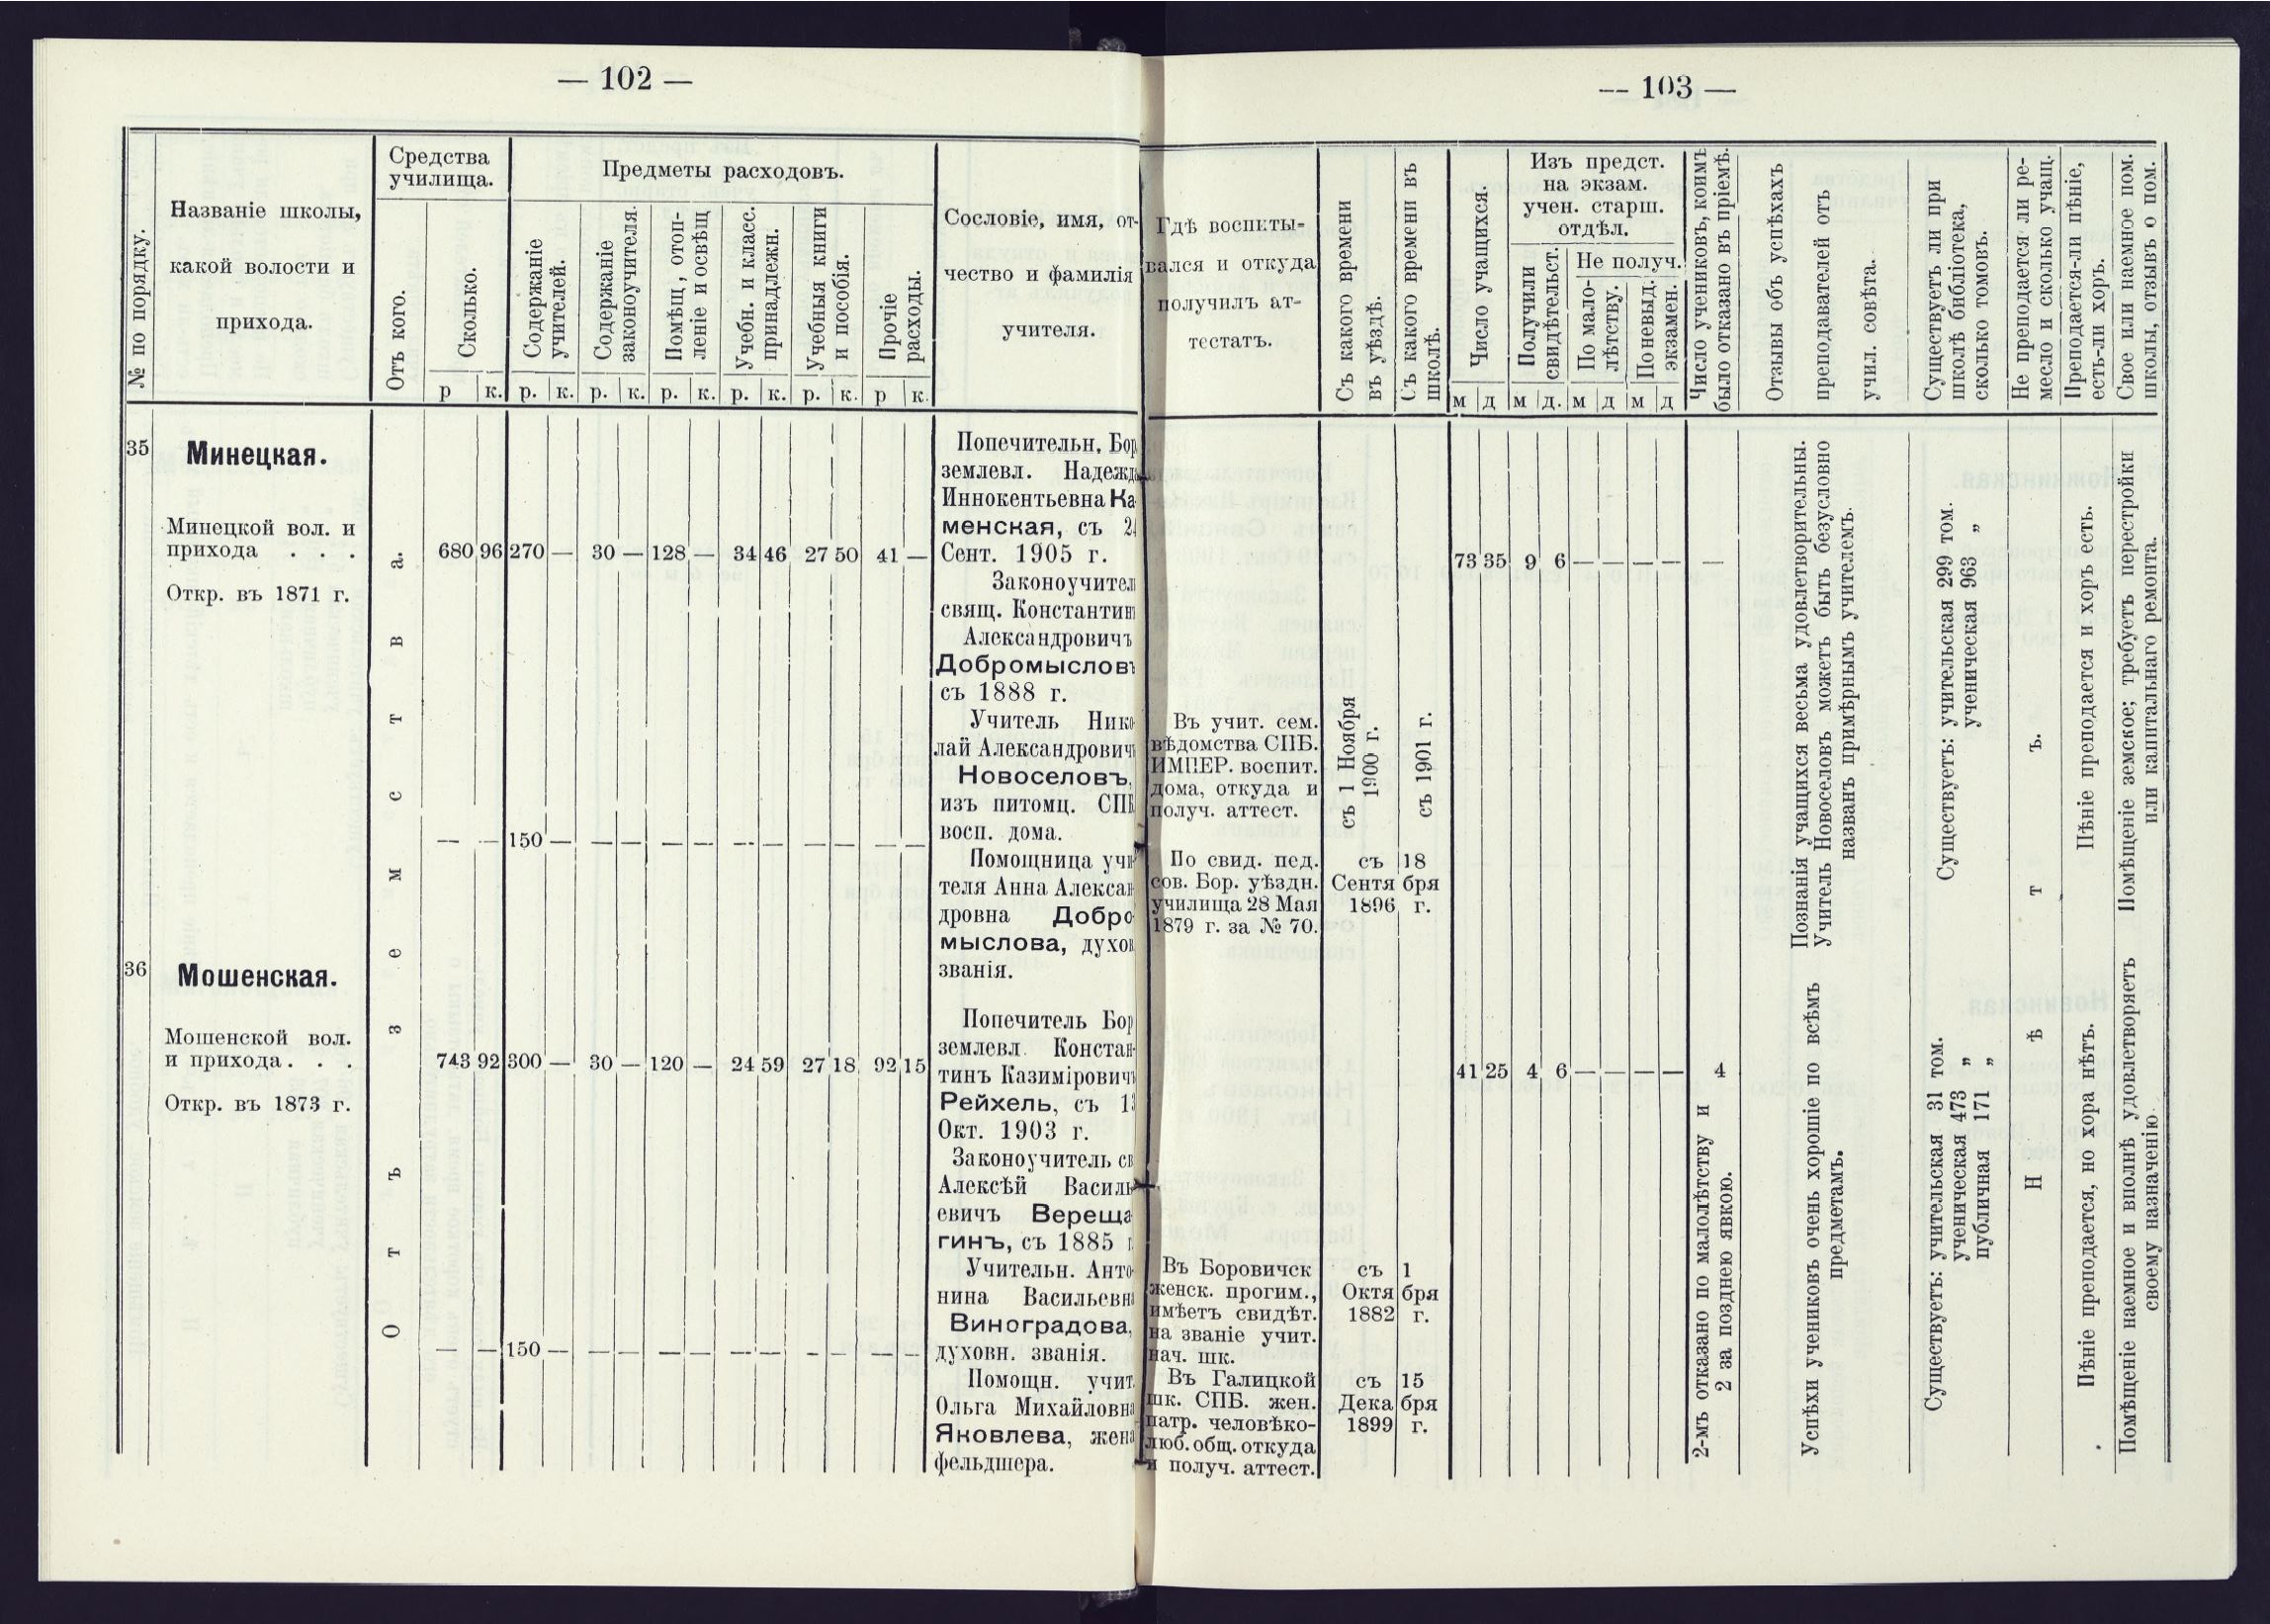 — 102 —
№ по порядку.
Названіе школы,
какой волости и
прихода.
Средства
училища.
Отъ кого.
Сколько.
р к.
Предметы расходовъ.
Содержаніе
учителей.
р. к.
Содержаніе
законоучителя.
р. к.
Помѣщ., отоп-
леніе и освѣщ
р. к.
Учебн. и класс.
принадлежн.
р. к.
Учебныя книги
и пособія.
р. к.
Прочіе
расходы.
р к.
Сословіе, имя, от-
чество и фамилія
учителя.
35
Минецкая.
Минецкой вол. и
прихода . . .
Откр. въ 1871 г.
Отъ земства.
680 96 270 — 30 — 128 — 34 46 27 50 41 —
— — 150 — — — — — — — — — — —
Попечительн. Бор
землевл. Надежд
Иннокентьевна Ка
менская, съ 24
Сент. 1905 г.
Законоучител
свящ. Константин
Александровичъ
Добромысловъ
съ 1888 г.
Учитель Нико
лай Александрович
Новоселовъ,
изъ питомц. СПБ
восп. дома.
Помощница учи
теля Анна Алексан
дровна Добро
мыслова, духов
званія.
36
Мошенская.
Мошенской вол.
и прихода . . .
Откр. въ 1873 г.
743 92 300 — 30 — 120 — 24 59 27 18 92 15
— — 150 — — — — — — — — — — —
Попечитель Бор
землевл. Констан-
тинъ Казимірович
Рейхель, съ 13
Окт. 1903 г.
Законоучитель св
Алексѣй Василь
евичъ Вереща
гинъ, съ 1885 г
Учительн. Анто
нина Васильевн
Виноградова,
духовн. званія.
Помощн. учит.
Ольга Михайловна
Яковлева, жена
фельдшера.
— 103 —
Гдѣ воспиты-
вался и откуда
получилъ ат-
тестатъ.
Съ какого времени
въ уѣздѣ.
Съ какого времени въ
школѣ.
Число учащихся.
м д
Изъ предст.
на экзам.
учен. старш.
отдѣл.
Получили
свидѣтельст.
м д.
Не получ.
По мало-
лѣтству.
м д
По невыд.
экзамен.
м д
Число учениковъ, коимъ
было отказано въ пріемѣ.
Отзывы объ успѣхахъ
преподавателей отъ
учил. совѣта.
Существуетъ ли при
школѣ библіотека,
сколько томовъ.
Не преподается ли ре-
месло и сколько учащ.
Преподается-ли пѣніе,
есть-ли хоръ.
Свое или наемное пом.
школы, отзывъ о пом.
73 35 9 6 — — — — —
Въ учит. сем.
вѣдомства СПБ.
ИМПЕР. воспит.
дома, откуда и
получ. аттест.
съ 1 Ноября
1900 г.
съ 1901 г.
По свид. пед.
сов. Бор. уѣздн.
училища 28 Мая
1879 г. за № 70.
съ 18
Сентя бря
1896 г.
Познанія учащихся весьма удовлетворительны.
Учитель Новоселовъ можетъ быть безусловно
названъ примѣрнымъ учителемъ.
Существуетъ: учительская 299 том.
ученическая 963 „
Нѣтъ.
Пѣніе преподается и хоръ есть.
Помѣщеніе земское; требуетъ перестройки
или капитальнаго ремонта.
41 25 4 6 — — — — 4
2-мъ отказано по малолѣтству и
2 за позднею явкою.
Въ Боровичск
женск. прогим.,
имѣетъ свидѣт.
на званіе учит.
нач. шк.
съ 1
Октя бря
1882 г.
Въ Галицкой
шк. СПБ. жен.
патр. человѣко-
люб. общ. откуда
и получ. аттест.
съ 15
Дека бря
1899 г.
Успѣхи учениковъ очень хорошіе по всѣмъ
предметамъ.
Существуетъ: учительская 31 том.
ученическая 473 „
публичная 171 „
Пѣніе преподается, но хора нѣтъ.
Помѣщеніе наемное и вполнѣ удовлетворяетъ
своему назначенію.